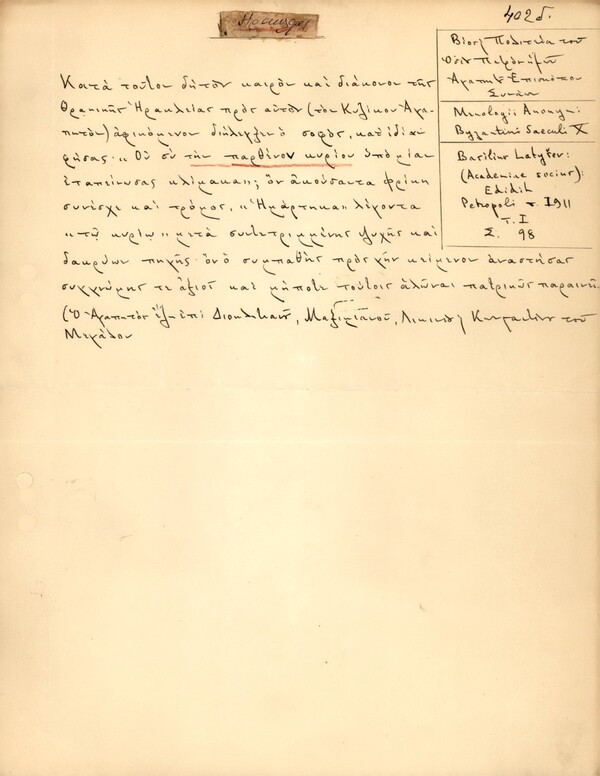 402δ.
Βίος κ Πολιτεία τοῦ
Ἀγαπητοῦ Ἐπισκόπου
Συνάου
Menologii Anonymi
Byzantini Saeculi X
Basilius Latyšev:
(Academiae socius):
Edidit
Petropoli τ. 1911
τ. I
Σ. 98
Κατὰ τοῦτον δὴ τὸν καιρὸν καὶ διάκονον τῆς
Θρᾳκικῆς Ἡρακλείας πρὸς αὐτὸν (τὸν Κυζίκου Ἀγα-
πητὸν) ἀφικόμενον διήλεγξεν ὁ σοφός, κατ' ἰδίαν
φήσας· « Οὐ σὺ τὴν παρθένον κυρίου ὑπὸ μίαν
ἐταπείνωσας κλίμακα»; ὃν ἀκούσαντα φρίκη
συνέσχε καὶ τρόμος, « Ἡμάρτηκα » λέγοντα
« τῷ κυρίῳ » μετὰ συντετριμμένης ψυχῆς καὶ
δακρύων πηγῆς· ὃν ὁ συμπαθὴς πρὸς γῆν κείμενον ἀναστήσας
συγγνώμης τε ἀξιοῖ καὶ μήποτε τούτοις ἁλῶναι πατρικῶς παραινεῖ.
(Ὁ Ἀγαπητὸς ἔζη ἐπὶ Διοκλητιανοῦ, Μαξιμιανοῦ, Λικινίου κ Κωνσταντίνου τοῦ
Μεγάλου